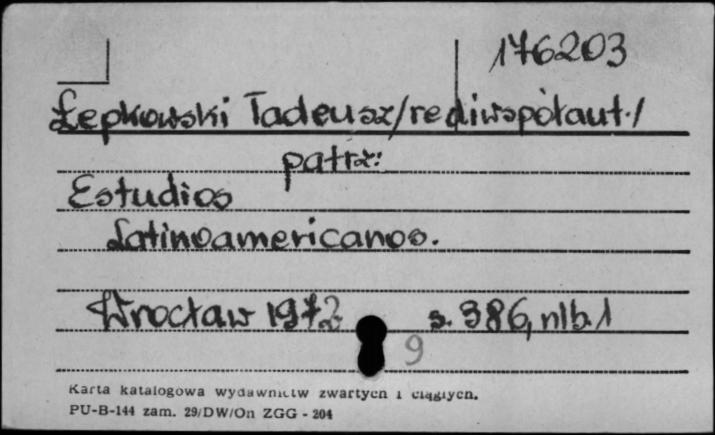 176203
Łepkowski Tadeusz/red i współaut./
patrz:
Estudios
Latinoamericanos.
Wrocław 1972 s. 386, nlb. 1
9
Karta katalogowa wydawnictw zwartych i ciągłych.
PU-B-144 zam. 29/DW/On ZGG - 204